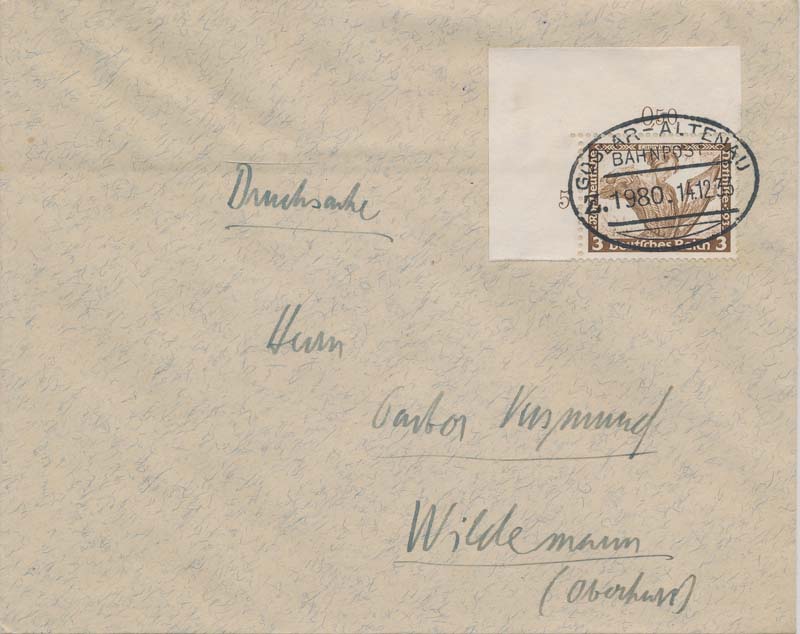 050
GOSLAR-ALTENAU
BAHNPOST
5
Z. 1980. 14.12.35
3 Deutsches Reich 3
Drucksache
Herrn
Pastor
Wildemann
(Oberharz)